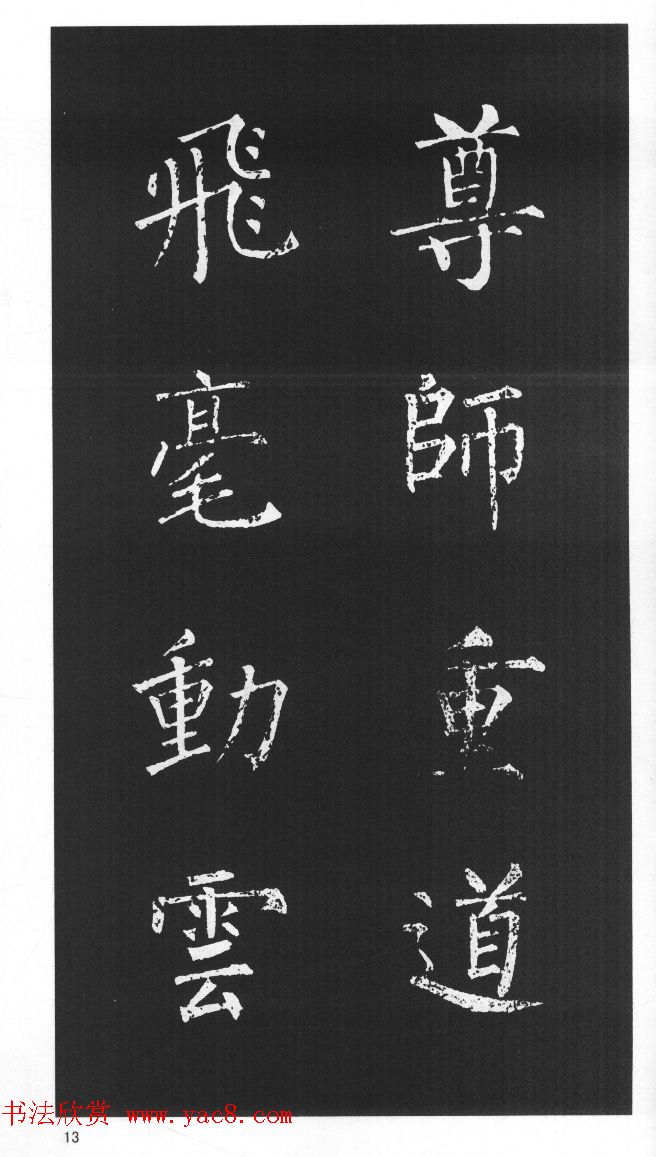 尊師重道
飛毫動雲
书法欣赏 www.yac8.com
13